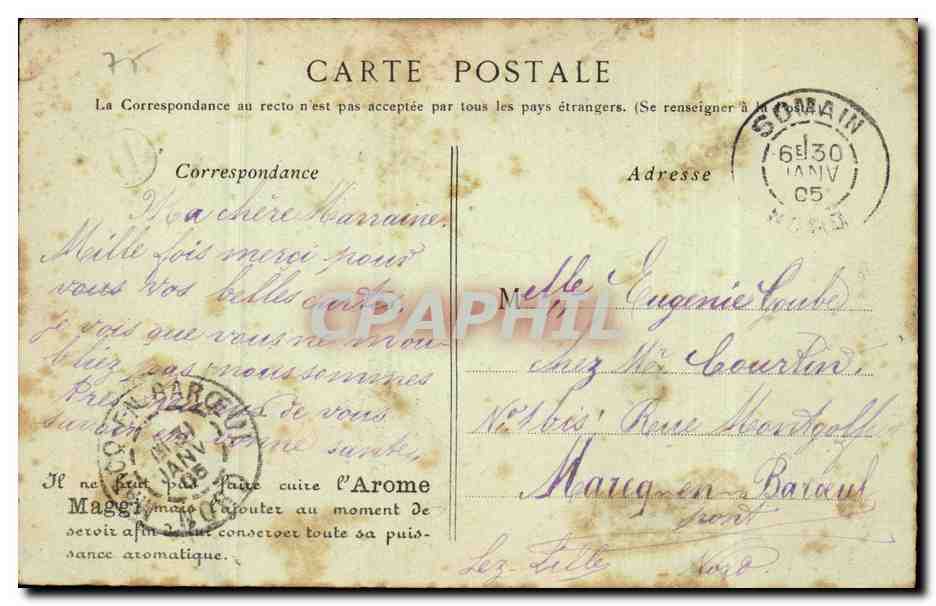 75
CARTE POSTALE
La Correspondance au recto n'est pas acceptée par tous les pays étrangers. (Se renseigner à la Poste
SOMAIN
6E 30
JANV
05
NORD
Correspondance
Adresse
Ma chère Marraine
Mille fois merci pour
vous vos belles cartes
je vois que vous ne m'ou-
bliez pas nous sommes
de vous
savoir en bonne santé
Melle Eugenie Coube
chez Mr Courtin
No 1 bis Rue Montgolf
Marcq-en-Baroeul
pont
Lez-Lille Nord
CPAPHIL
EN-BAROEUL
31
JANV
05
NORD
Il ne faut pas faire cuire l'Arome
Maggi, mais l'ajouter au moment de
servir afin de lui conserver toute sa puis-
sance aromatique.